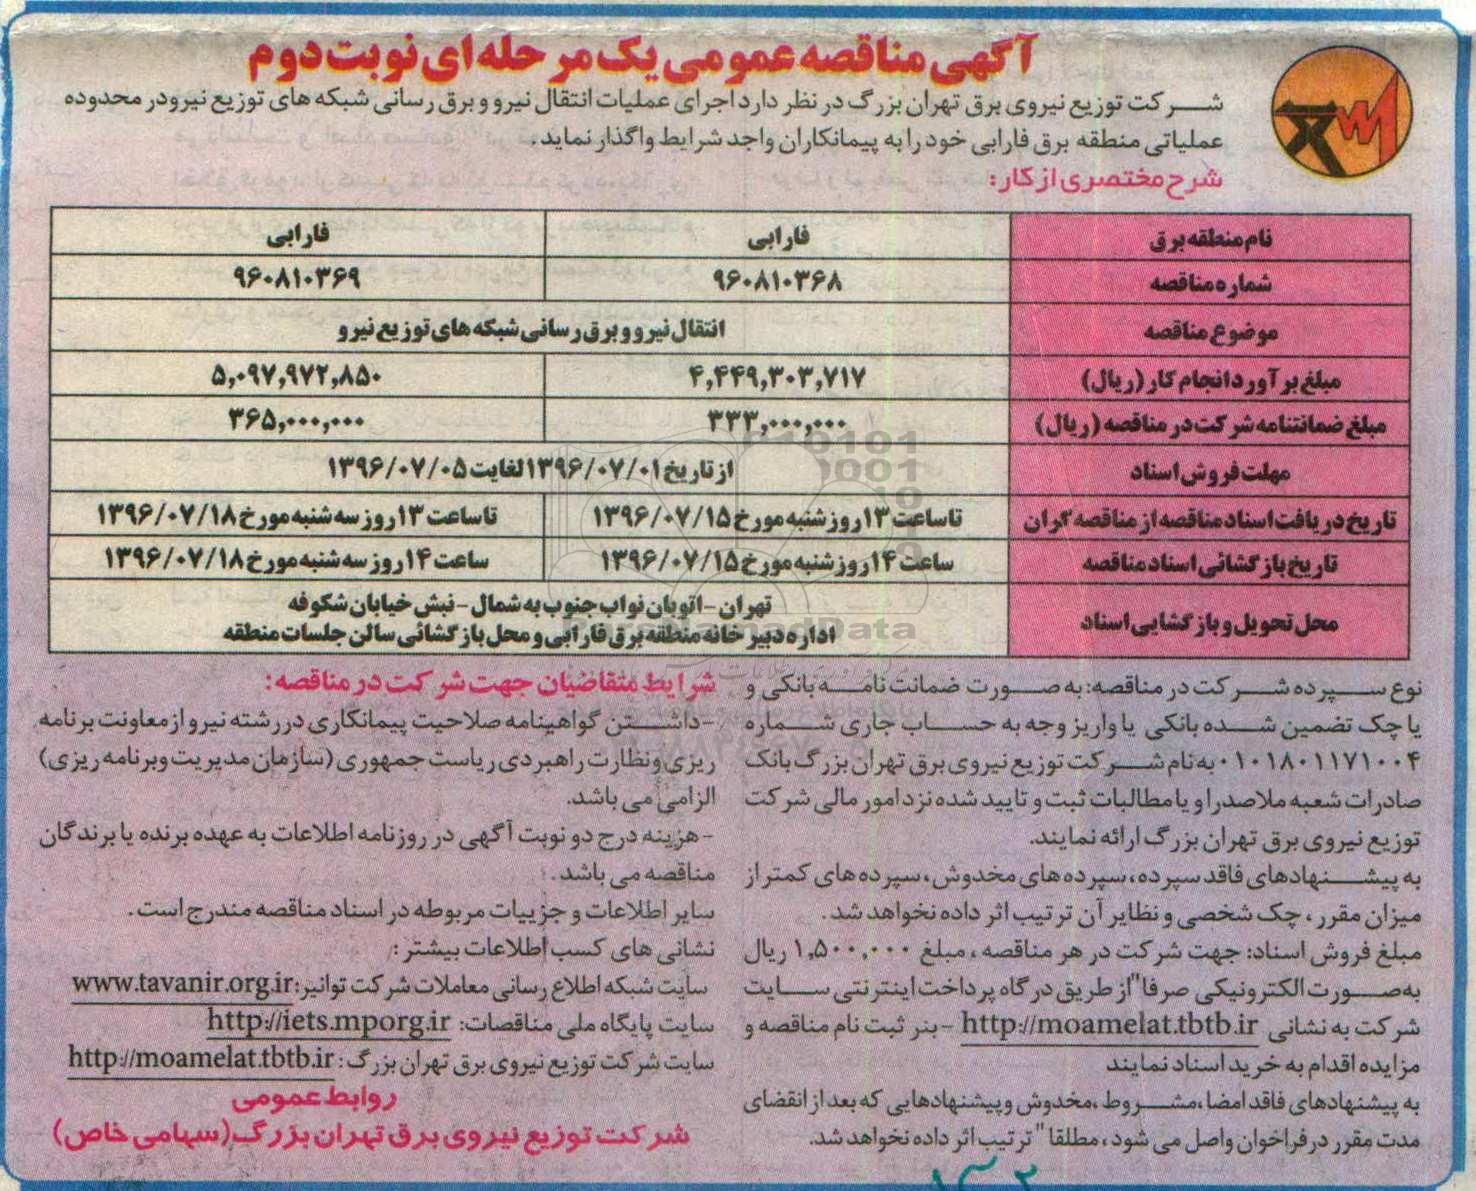 آگهی مناقصه عمومی یک مرحله‌ای نوبت دوم
شرکت توزیع نیروی برق تهران بزرگ در نظر دارد اجرای عملیات انتقال نیرو و برق رسانی شبکه های توزیع نیرو در محدوده
عملیاتی منطقه برق فارابی خود را به پیمانکاران واجد شرایط واگذار نماید.
شرح مختصری از کار:
نام منطقه برق فارابی فارابی
شماره مناقصه ۹۶۰۸۱۰۳۶۸ ۹۶۰۸۱۰۳۶۹
موضوع مناقصه انتقال نیرو و برق رسانی شبکه های توزیع نیرو
مبلغ برآورد انجام کار (ریال) ۴,۴۴۹,۳۰۳,۷۱۷ ۵,۰۹۷,۹۷۲,۸۵۰
مبلغ ضمانتنامه شرکت در مناقصه (ریال) ۳۳۳,۰۰۰,۰۰۰ ۳۶۵,۰۰۰,۰۰۰
مهلت فروش اسناد از تاریخ ۱۳۹۶/۰۷/۰۱ لغایت ۱۳۹۶/۰۷/۰۵
تاریخ دریافت اسناد مناقصه از مناقصه گران تا ساعت ۱۳ روز شنبه مورخ ۱۳۹۶/۰۷/۱۵ تا ساعت ۱۳ روز سه شنبه مورخ ۱۳۹۶/۰۷/۱۸
تاریخ بازگشائی اسناد مناقصه ساعت ۱۴ روز شنبه مورخ ۱۳۹۶/۰۷/۱۵ ساعت ۱۴ روز سه شنبه مورخ ۱۳۹۶/۰۷/۱۸
محل تحویل و بازگشایی اسناد تهران - اتوبان نواب جنوب به شمال - نبش خیابان شکوفه
اداره دبیرخانه منطقه برق فارابی و محل بازگشائی سالن جلسات منطقه
نوع سپرده شرکت در مناقصه: به صورت ضمانت نامه بانکی و
یا چک تضمین شده بانکی یا واریز وجه به حساب جاری شماره
۰۱۰۱۸۰۱۱۷۱۰۰۴ به نام شرکت توزیع نیروی برق تهران بزرگ بانک
صادرات شعبه ملاصدرا و یا مطالبات ثبت و تایید شده نزد امور مالی شرکت
توزیع نیروی برق تهران بزرگ ارائه نمایند.
به پیشنهادهای فاقد سپرده، سپرده های مخدوش، سپرده های کمتر از
میزان مقرر، چک شخصی و نظایر آن ترتیب اثر داده نخواهد شد.
مبلغ فروش اسناد: جهت شرکت در هر مناقصه، مبلغ ۱,۵۰۰,۰۰۰ ریال
به صورت الکترونیکی صرفا" از طریق درگاه پرداخت اینترنتی سایت
شرکت به نشانی http://moamelat.tbtb.ir - بنر ثبت نام مناقصه و
مزایده اقدام به خرید اسناد نمایند
به پیشنهادهای فاقد امضا، مشروط، مخدوش و پیشنهادهایی که بعد از انقضای
مدت مقرر در فراخوان واصل می شود، مطلقا" ترتیب اثر داده نخواهد شد.
شرایط متقاضیان جهت شرکت در مناقصه:
-داشتن گواهینامه صلاحیت پیمانکاری در رشته نیرو از معاونت برنامه
ریزی و نظارت راهبردی ریاست جمهوری (سازمان مدیریت و برنامه ریزی)
الزامی می باشد.
-هزینه درج دو نوبت آگهی در روزنامه اطلاعات به عهده برنده یا برندگان
مناقصه می باشد.
سایر اطلاعات و جزییات مربوطه در اسناد مناقصه مندرج است.
نشانی های کسب اطلاعات بیشتر:
سایت شبکه اطلاع رسانی معاملات شرکت توانیر: www.tavanir.org.ir
سایت پایگاه ملی مناقصات: http://iets.mporg.ir
سایت شرکت توزیع نیروی برق تهران بزرگ: http://moamelat.tbtb.ir
روابط عمومی
شرکت توزیع نیروی برق تهران بزرگ (سهامی خاص)